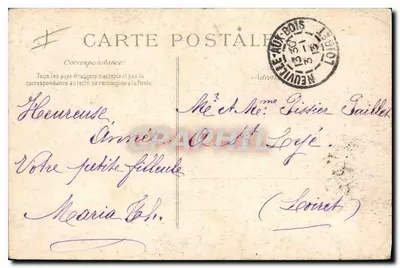 CARTE POSTALE
Correspondance
Tous les pays étrangers n'acceptent pas la
correspondance au recto, se renseigner à la Poste.
NEUVILLE-AUX-BOIS
LOIRET
Heureuse
Année
Votre petite filleule
Maria Th.
Mr et Mme Tissier Paillet
A St Lyé
(Loiret)